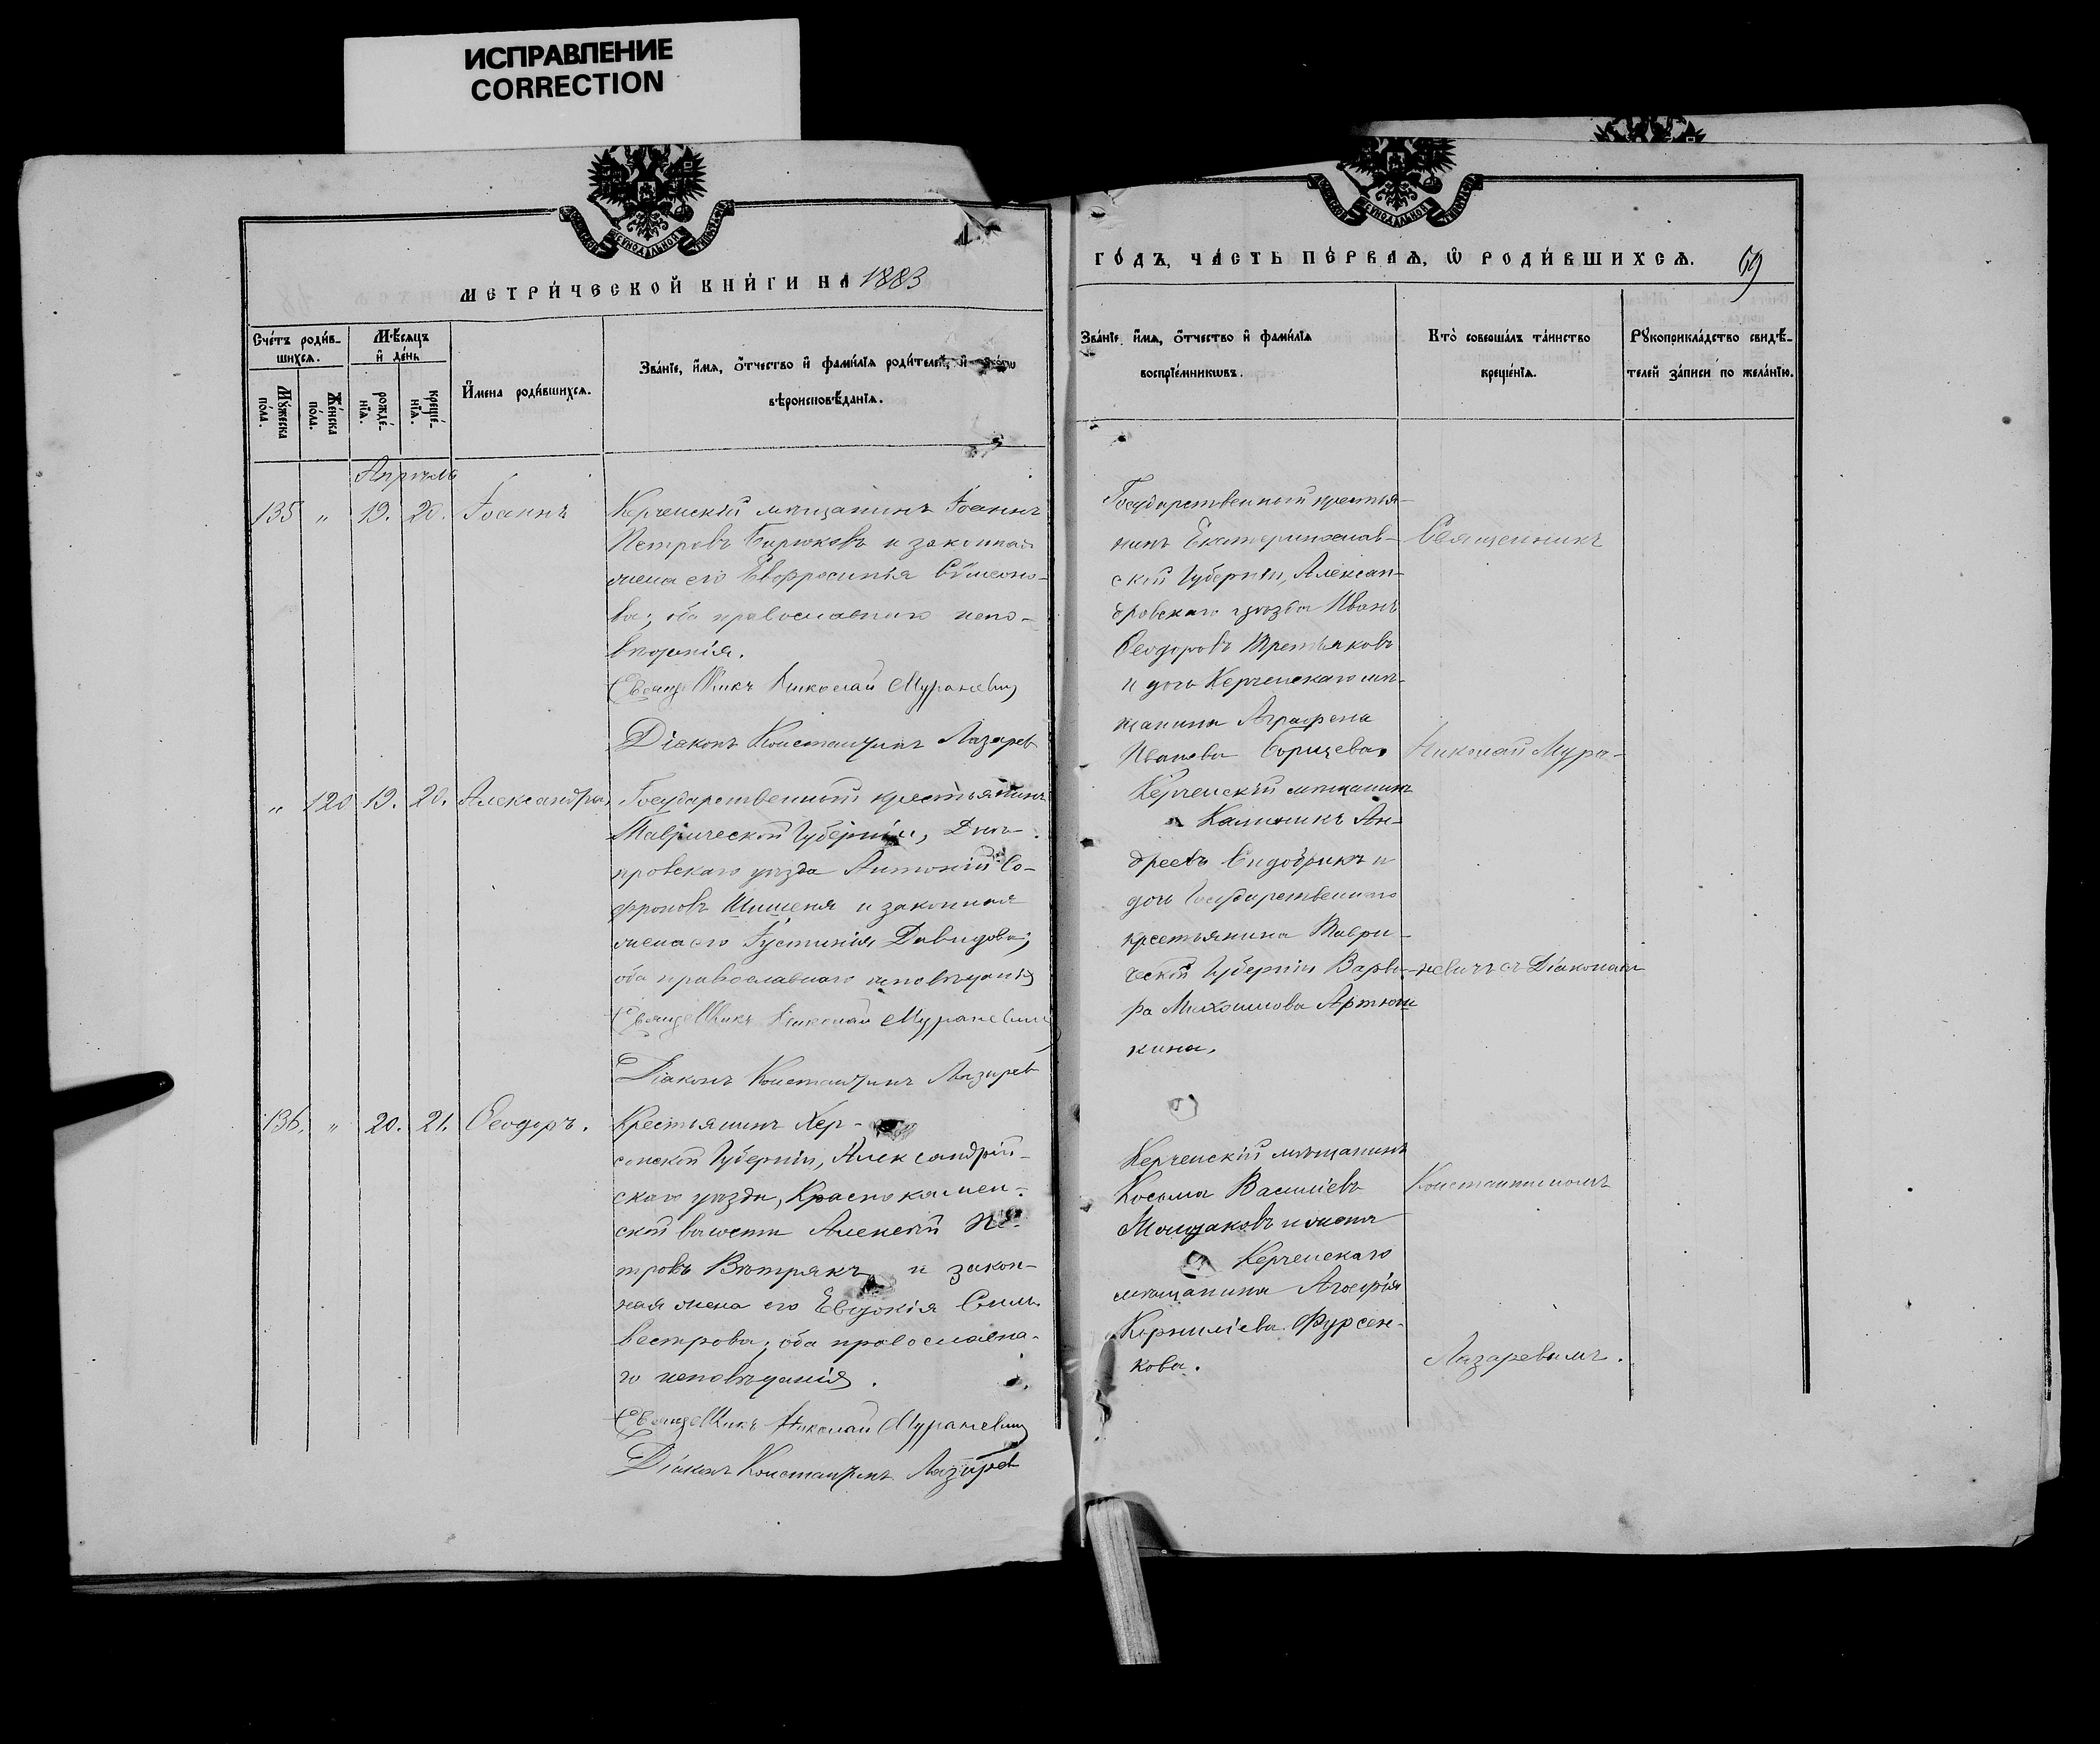 ИСПРАВЛЕНИЕ
CORRECTION
МЕТРИ́ЧЕСКОЙ КНИ́ГИ НА 1883
Сче́тъ роди́в-
шихсѧ.
Мѣ́сяцъ
и҆ де́нь
Мꙋ́жеска
по́ла.
Же́нска
по́ла.
рожде́-
нїѧ.
креще́-
нїѧ.
И҆мена роди́вшихсѧ.
Зва́нїе, и҆́мѧ, ѻ҆́тчество и҆ фами́лїѧ роди́телей, и҆
вѣроисповѣ́данїѧ.
Апрѣль
135 „ 19. 20. Іоаннъ
Керченскій мѣщанинъ Іоаннъ
Петровъ Бирюковъ и законная
жена его Евфросинія Сѵмеоно-
ва; оба православнаго испо-
вѣданія.
Священникъ Николай Мураневич
Діаконъ Константинъ Лазарев
„ 120 19. 20. Александра,
Государственный крестьянинъ
Таврической Губерніи, Днѣ-
провскаго уѣзда Антоній Со-
фроновъ Шишеня и законная
жена его Іустинія Давидова;
оба православнаго исповѣданія
Священникъ Николай Мураневич
Діаконъ Константинъ Лазарев
136. „ 20. 21. Ѳеодоръ.
Крестьянинъ Хер-
сонской Губерніи, Александрій-
скаго уѣзда, Краснокамен-
ской волости Алексій Пе-
тровъ Вѣтрякъ и закон-
ная жена его Евдокія Силь-
вестрова; оба православна-
го исповѣданія.
Священникъ Николай Мураневич
Діаконъ Константинъ Лазарев
ГО́ДЪ, ЧА́СТЬ ПЕ́РВАѦ, Ѡ҆ РОДИ́ВШИХСѦ. 69
Зва́нїе, и҆́мѧ, ѻ҆́тчество и҆ фами́лїѧ
воспрїе́мникѡвъ.
Кто̀ соверша́лъ та́инство
креще́нїѧ.
Рꙋкоприкла́дство свидѣ́-
телей за́писи по жела́нїю.
Государственный крестья-
нинъ Екатеринослав-
ской Губерніи, Алексан-
дровскаго уѣзда Иванъ
Ѳеодоровъ Третьяковъ
и дочь Керченскаго мѣ-
щанина Аграфена
Иванова Борщева.
Керченскій мѣщанинъ
Калиникъ Ан-
дреевъ и
дочь Государственнаго
крестьянина Таври-
ческой Губерніи Варва-
ра Михаилова Артюш-
кина.
Керченскій мѣщанинъ
Косьма Василіевъ
и жена
Керченскаго
мѣщанина Агафія
Корниліева Фурсен-
кова.
Священникъ
Николай Мура-
невичъ съ Діакономъ
Константиномъ
Лазаревымъ.